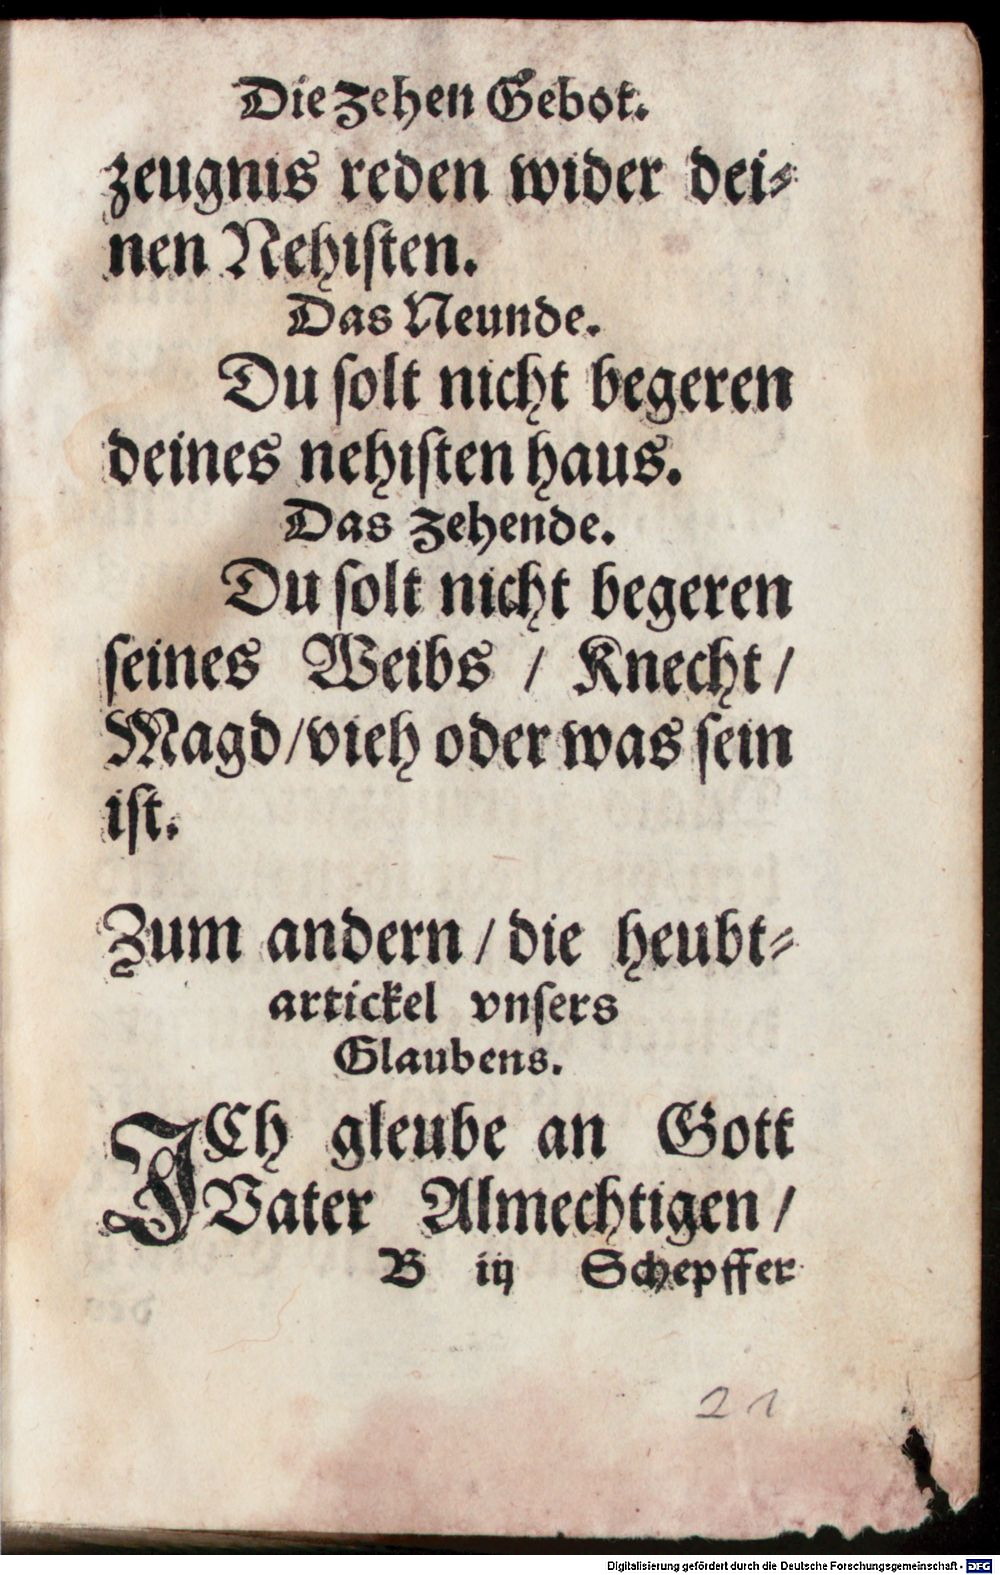 Die zehen Gebot.
zeugnis reden wider dei⸗
nen Nehisten.
Das Neunde.
Du solt nicht begeren
deines nehisten haus.
Das zehende.
Du solt nicht begeren
seines Weibs / Knecht /
Magd / vieh oder was sein
ist.
Zum andern / die heubt⸗
artickel vnsers
Glaubens.
ICh gleube an Gott
Vater Almechtigen /
B iij Schepffer
21
Digitalisierung gefördert durch die Deutsche Forschungsgemeinschaft - DFG